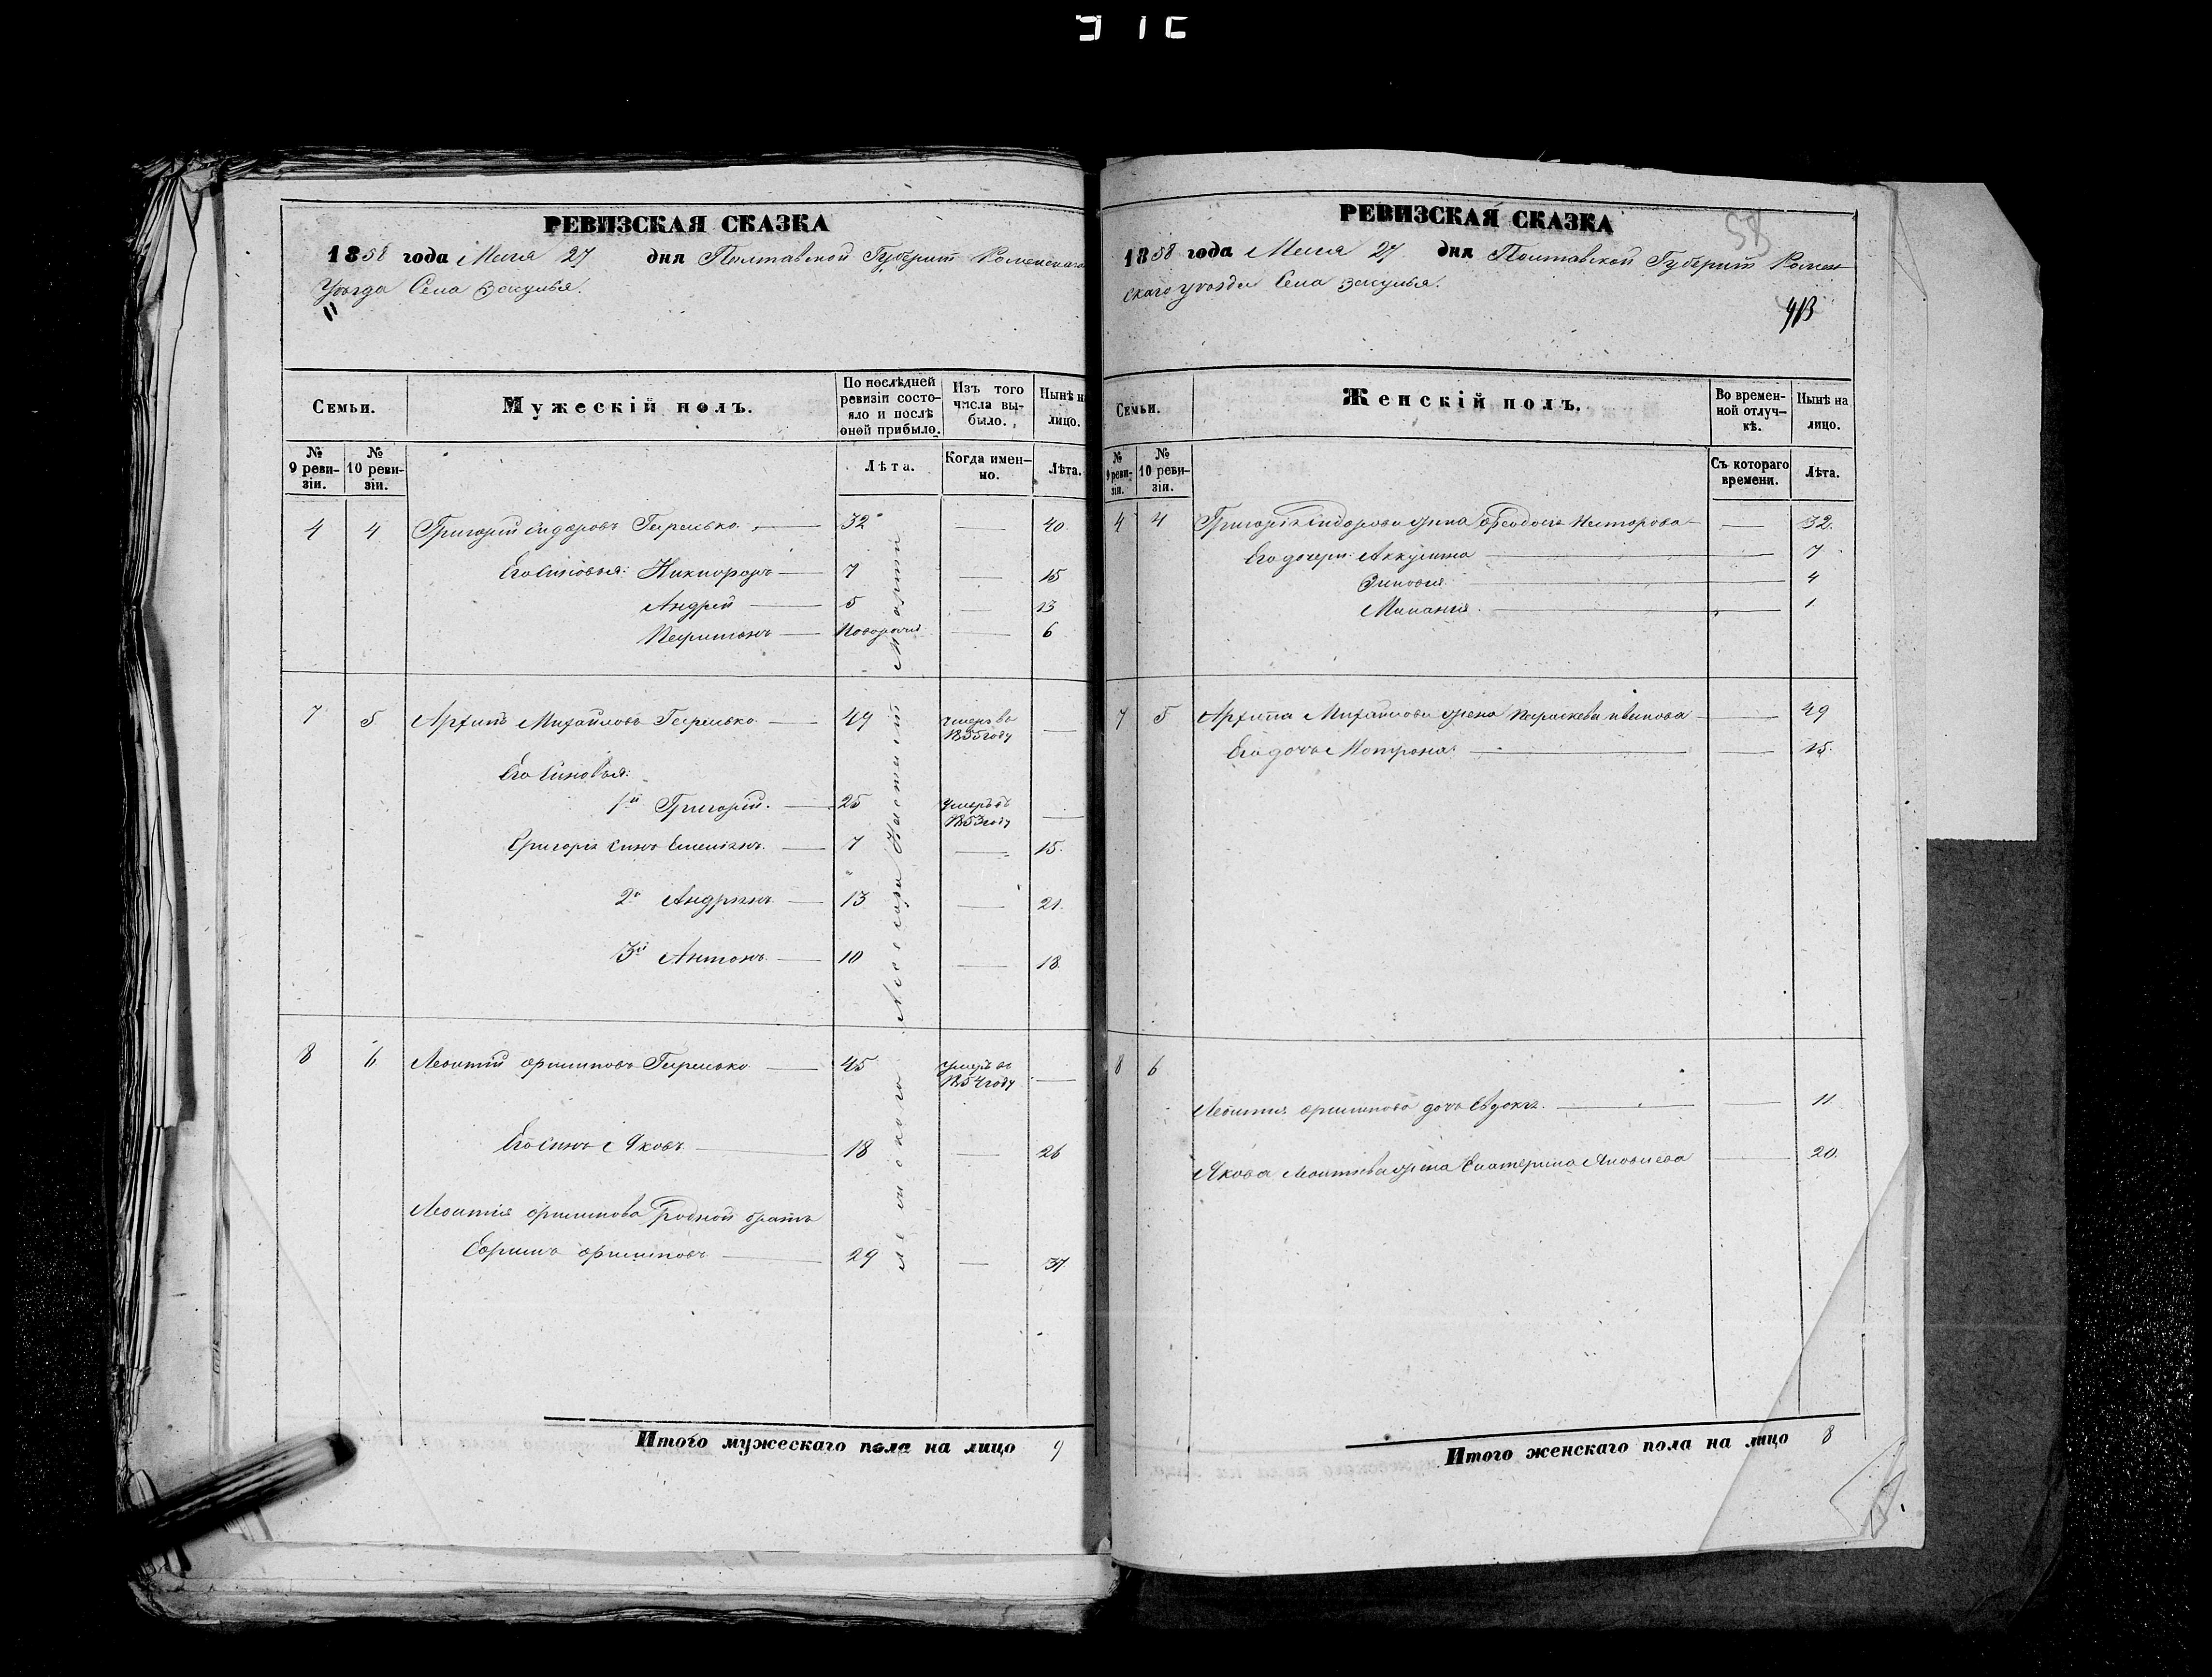 РЕВИЗСКАЯ СКАЗКА
1858 года Мая 27 дня Полтавской Губерніи Роменскаго
Уѣзда Села Засулья.
Семьи.
Мужескій полъ.
По послѣдней ревизіи состояло и послѣ оной прибыло.
Изъ того числа выбыло.
Нынѣ на лицо.
№ 9 ревизіи.
№ 10 ревизіи.
Лѣта.
Когда именно.
Лѣта.
4 4 Григорій Сидоровъ 32 — 40
Его сыновья: Никифоръ — 7 — 15
Андрей — 5 — 13
Харитонъ — Новорож — 6
7 5 Архипъ Михайловъ — 49 умеръ въ 1855 году —
Его сыновья:
1й Григорій. — 25 умеръ въ 1853 году —
Григорія сынъ Емельянъ. — 7 — 15.
2й Андріянъ — 13 — 21.
3й Антонъ — 10 — 18.
8 6 Леонтій Филиповъ — 45 умеръ въ 1854 году —
Его сынъ Яковъ — 18 — 26
Леонтія Филипова родной братъ
Ефимъ Филиповъ — 29 — 37
Итого мужескаго пола на лицо 9
РЕВИЗСКАЯ СКАЗКА
58
1858 года Мая 27 дня Полтавской Губерніи Ромен
скаго уѣзда Села Засулья.
413
Семьи.
Женскій полъ.
Во временной отлучкѣ.
Нынѣ на лицо.
№ 9 ревизіи.
№ 10 ревизіи.
Съ котораго времени.
Лѣта.
4 4 Григорія Сидорова жена Феодосія Нестерова — 32.
Его дочери: Аккулина — 7
Зиновія — 4
Миланія. — 1
7 5 Архипа Михайлова жена Параскева Иванова — 49
Его дочь Мотрона. — 15.
8 6
Леонтія Филипова дочь Евдокія. — 11.
Якова Леонтіева жена Екатерина Яковлева — 20.
Итого женскаго пола на лицо 8